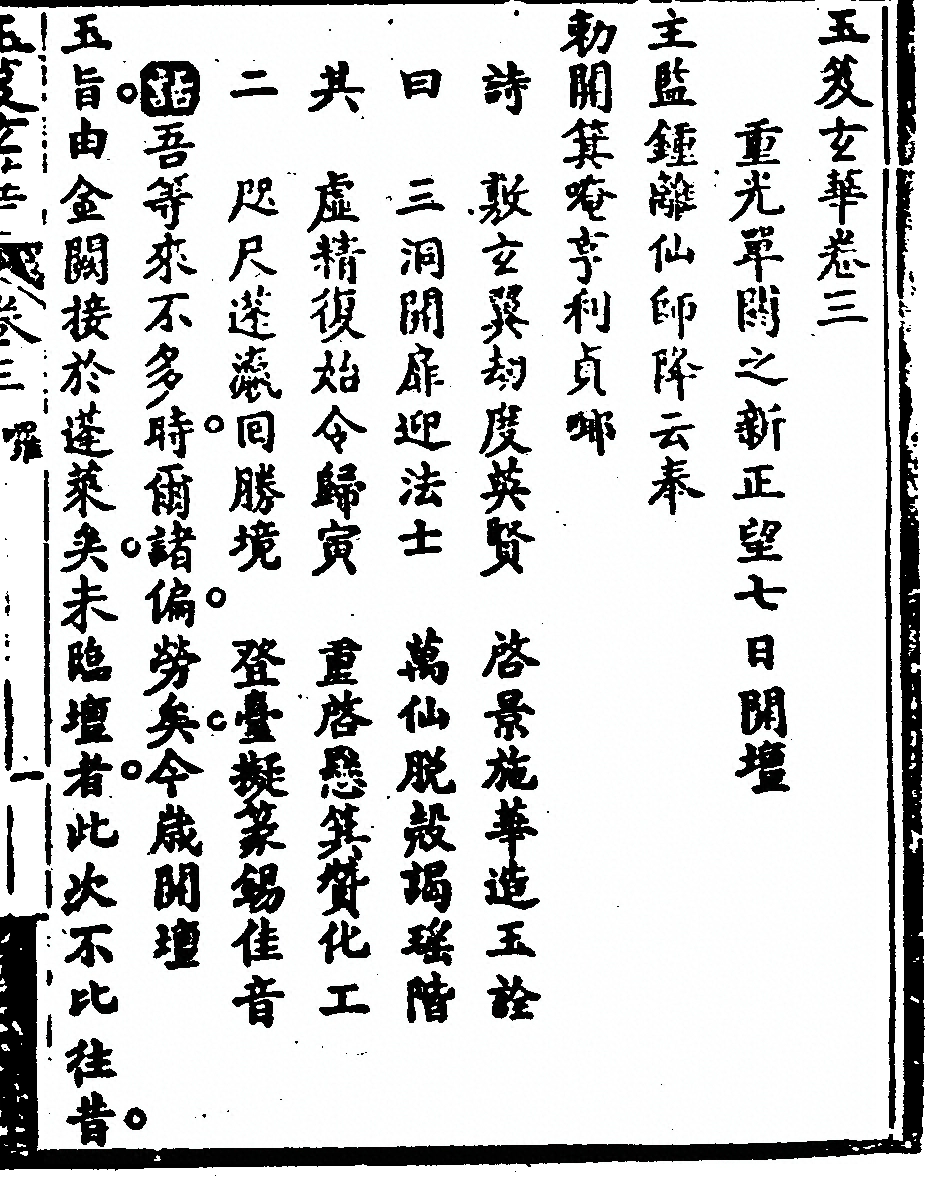 玉笈玄華卷三
重光單閼之新正望七日開壇
主監鍾離仙師降云奉
勅開箕唵亨利貞哪
詩 敷玄翼劫度英賢 啓景施華造玉詮
曰 三洞開扉迎法士 萬仙脫殼謁瑤階
其 虛精復始令歸寅 重啓懸箕贊化工
二 咫尺蓬瀛回勝境 登臺擬篆錫佳音
吾等來不多時。爾諸偏。勞矣。今歲開壇
玉旨。由金闕接於蓬萊矣。未臨壇者。此次不比往昔。
玉笈玄華 卷三 囉 一